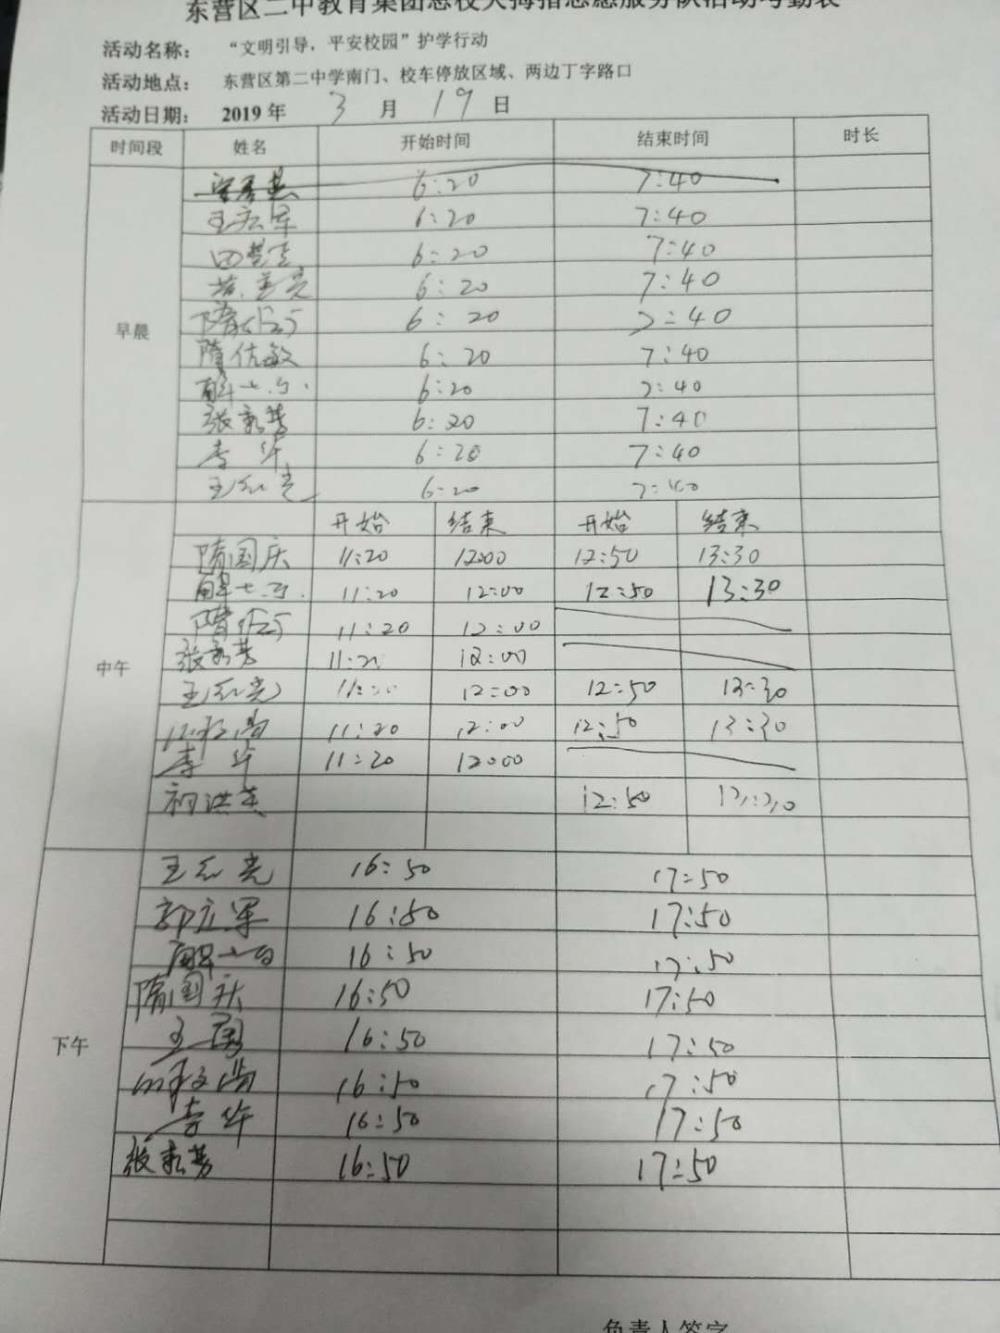 东营区二中教育集团总校大拇指志愿服务队活动考勤表
活动名称： “文明引导，平安校园”护学行动
活动地点： 东营区第二中学南门、校车停放区域、两边丁字路口
活动日期： 2019 年 3 月 19 日
时间段 姓名 开始时间 结束时间 时长
早晨
6:20 7:40
王宏军 6:20 7:40
6:20 7:40
6:20 7:40
6:20 7:40
隋信敏 6:20 7:40
6:20 7:40
张新芳 6:20 7:40
李华 6:20 7:40
王红光 6:20 7:40
中午
开始 结束 开始 结束
隋国庆 11:20 12:00 12:50 13:30
11:20 12:00 12:50 13:30
11:20 12:00
张新芳 11:20 12:00
王红光 11:20 12:00 12:50 13:30
11:20 12:00 12:50 13:30
李华 11:20 12:00
祠洪英 12:50 13:30
下午
王红光 16:50 17:50
郭立军 16:50 17:50
16:50 17:50
隋国庆 16:50 17:50
王国 16:50 17:50
16:50 17:50
李华 16:50 17:50
张新芳 16:50 17:50
负责人签字